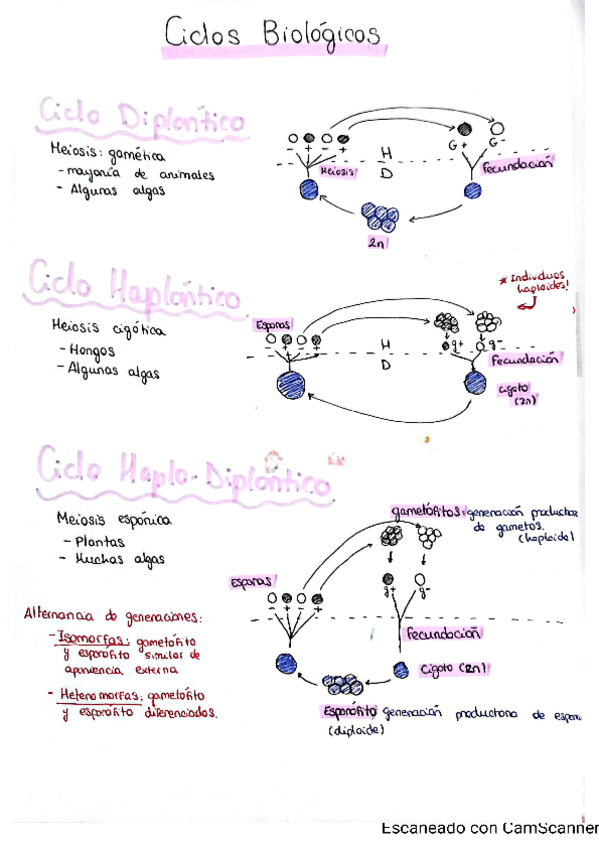 Ciclos Biológicos
Ciclo Diplontico
Meiosis: gamética
- mayoría de animales
- Algunas algas
- + - +
Meiosis
H
D
G+ G-
Fecundación
2n
Ciclo Haplontico
Meiosis cigótica
- Hongos
- Algunas algas
Esporas
- + - +
H
D
* Individuos
haploides!
g+ g-
Fecundación
cigoto
(2n)
Ciclo Haplo-Diplontico
Meiosis espónica
- Plantas
- Muchas algas
gametófitos: generación productora
de gametos.
(haploide)
Esporas
- + - +
g+ g-
Fecundación
Cigoto (2n)
Alternancia de generaciones:
- Isomorfas: gametófito
y esporófito similar de
apariencia externa
- Heteromorfas: gametófito
y esporófito diferenciados.
Esporófito generación productora de espora
(diploide)
Escaneado con CamScanner